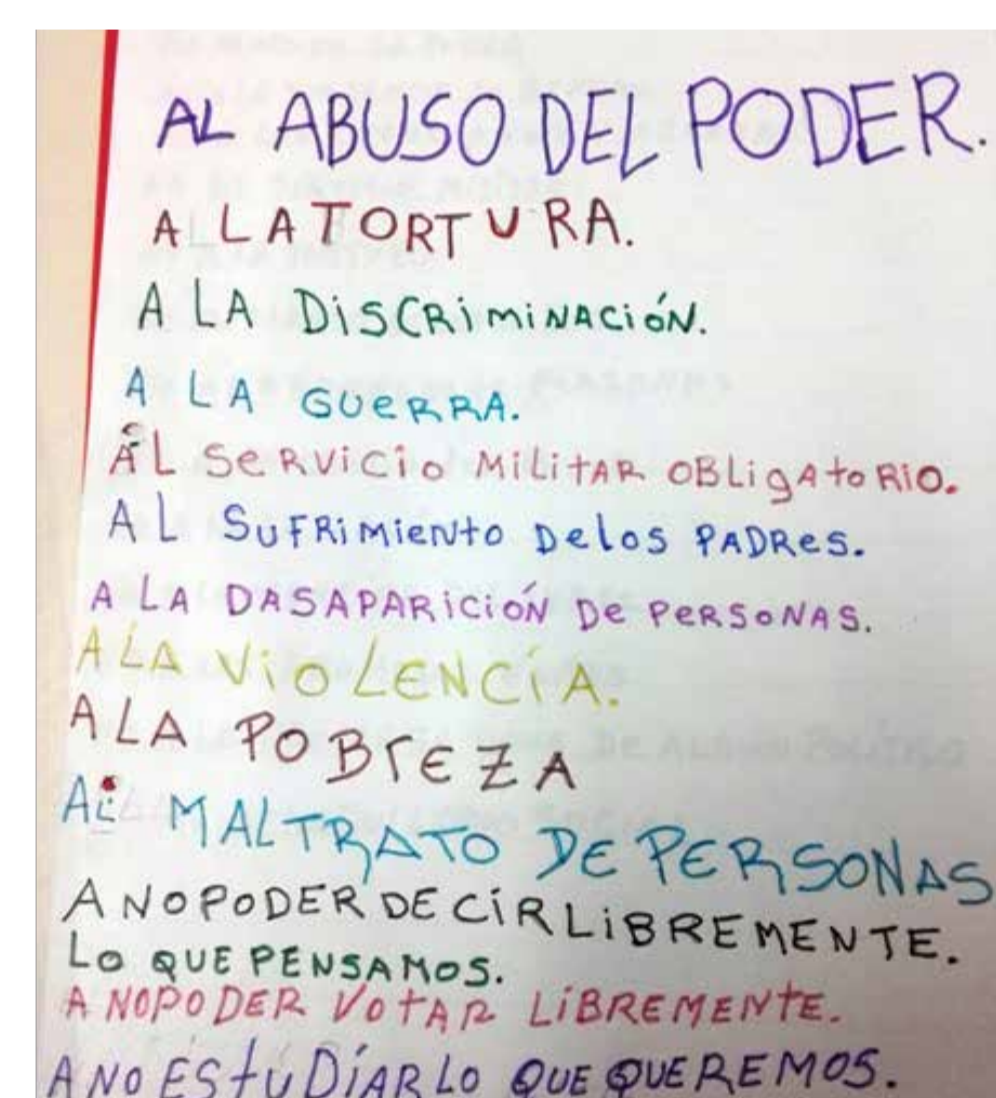 AL ABUSO DEL PODER.
A LA TORTURA.
A LA DiSCRiMiNACiÓN.
A LA GUeRRA.
AL SeRViCio MiLitAR OBLigAtoRiO.
AL SuFRiMieNto DeloS PADReS.
A LA DASAPARiCiÓN De PeRSoNAS.
A LA ViOLENCíA.
A LA POBrEZA
AL MALTRATO DE PERSONAS
A NO PODER DECiR LiBREMENTE.
Lo QUE PENSAMOS.
A NO PODER VotAR LiBREMENtE.
A NO EStuDíAR LO QUE QUEREMOS.